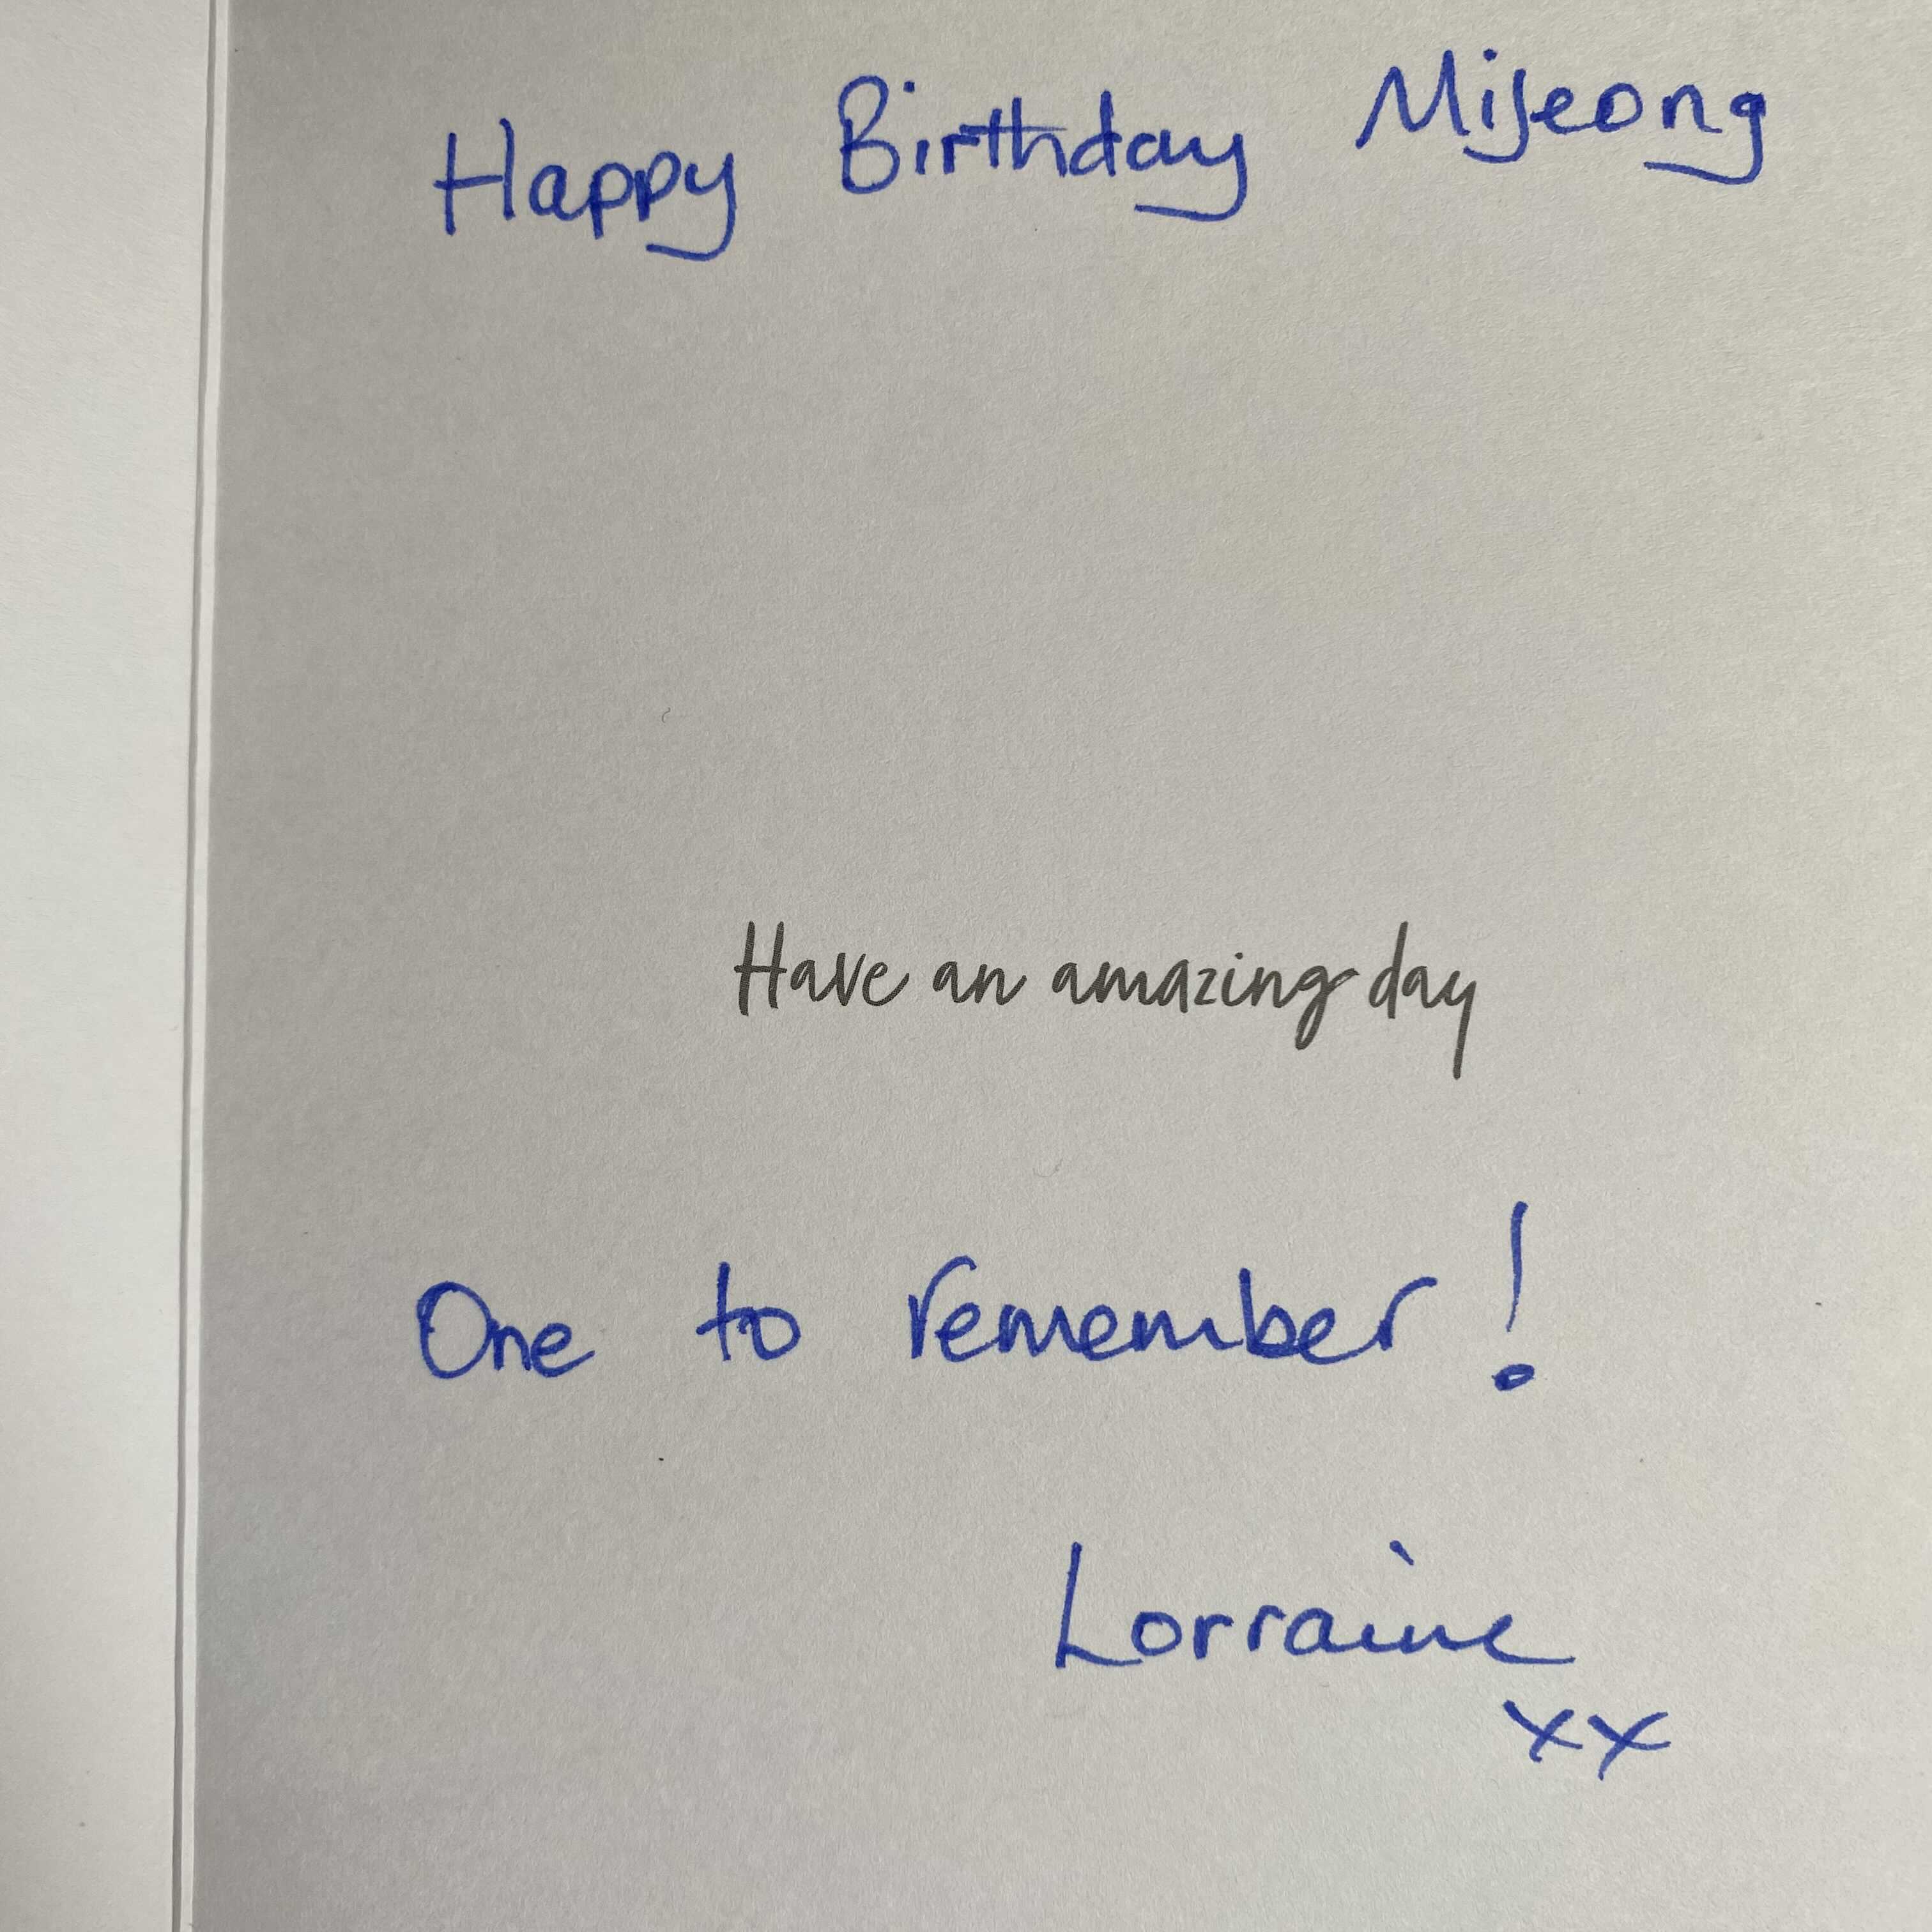 Happy Birthday Mijeong
Have an amazing day
One to remember!
Lorraine
xx